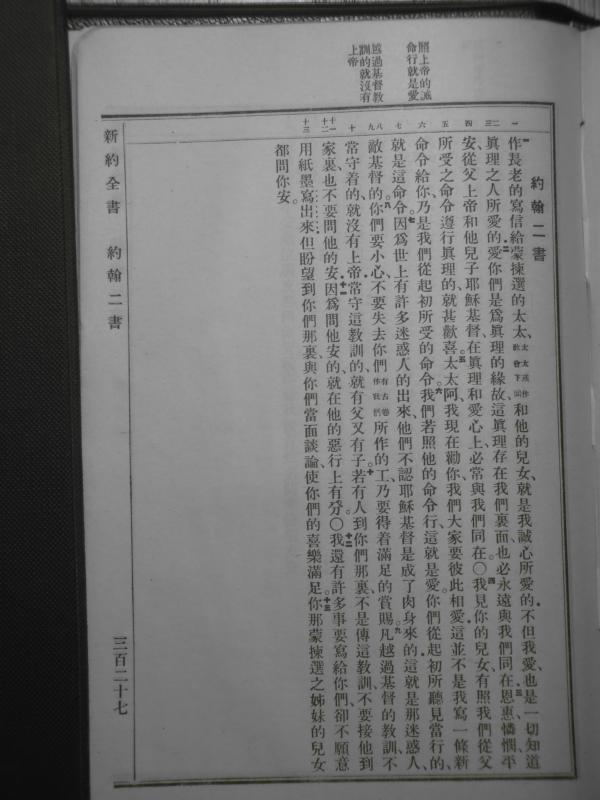 照上帝的誡
命行就是愛
越過基督教
訓的就沒有
上帝
一
二
三
四
五
六
七
八
九
十
十一
十二
十三
約翰二書
一作長老的寫信給蒙揀選的太太、太太或作教會下同和他的兒女、就是我誠心所愛的、不但我愛、也是一切知道
眞理之人所愛的。二愛你們是爲眞理的緣故、這眞理存在我們裏面、也必永遠與我們同在。三恩惠憐憫平
安、從父上帝和他兒子耶穌基督、在眞理和愛心上、必常與我們同在○四我見你的兒女、有照我們從父
所受之命令遵行眞理的、就甚歡喜。五太太阿、我現在勸你、我們大家要彼此相愛、這並不是我寫一條新
命令給你、乃是我們從起初所受的命令。六我們若照他的命令行、這就是愛。你們從起初所聽見當行的、
就是這命令。七因爲世上有許多迷惑人的出來、他們不認耶穌基督是成了肉身來的、這就是那迷惑人、
敵基督的。八你們要小心、不要失去你們有古卷作我們所作的工、乃要得着滿足的賞賜。九凡越過基督的教訓、不
常守着的、就沒有上帝。常守這教訓的、就有父又有子。十若有人到你們那裏、不是傳這教訓、不要接他到
家裏、也不要問他的安。十一因爲問他安的、就在他的惡行上有分○十二我還有許多事要寫給你們、卻不願意
用紙墨寫出來、但盼望到你們那裏、與你們當面談論、使你們的喜樂滿足。十三你那蒙揀選之姊妹的兒女
都問你安。
新約全書 約翰二書 三百二十七